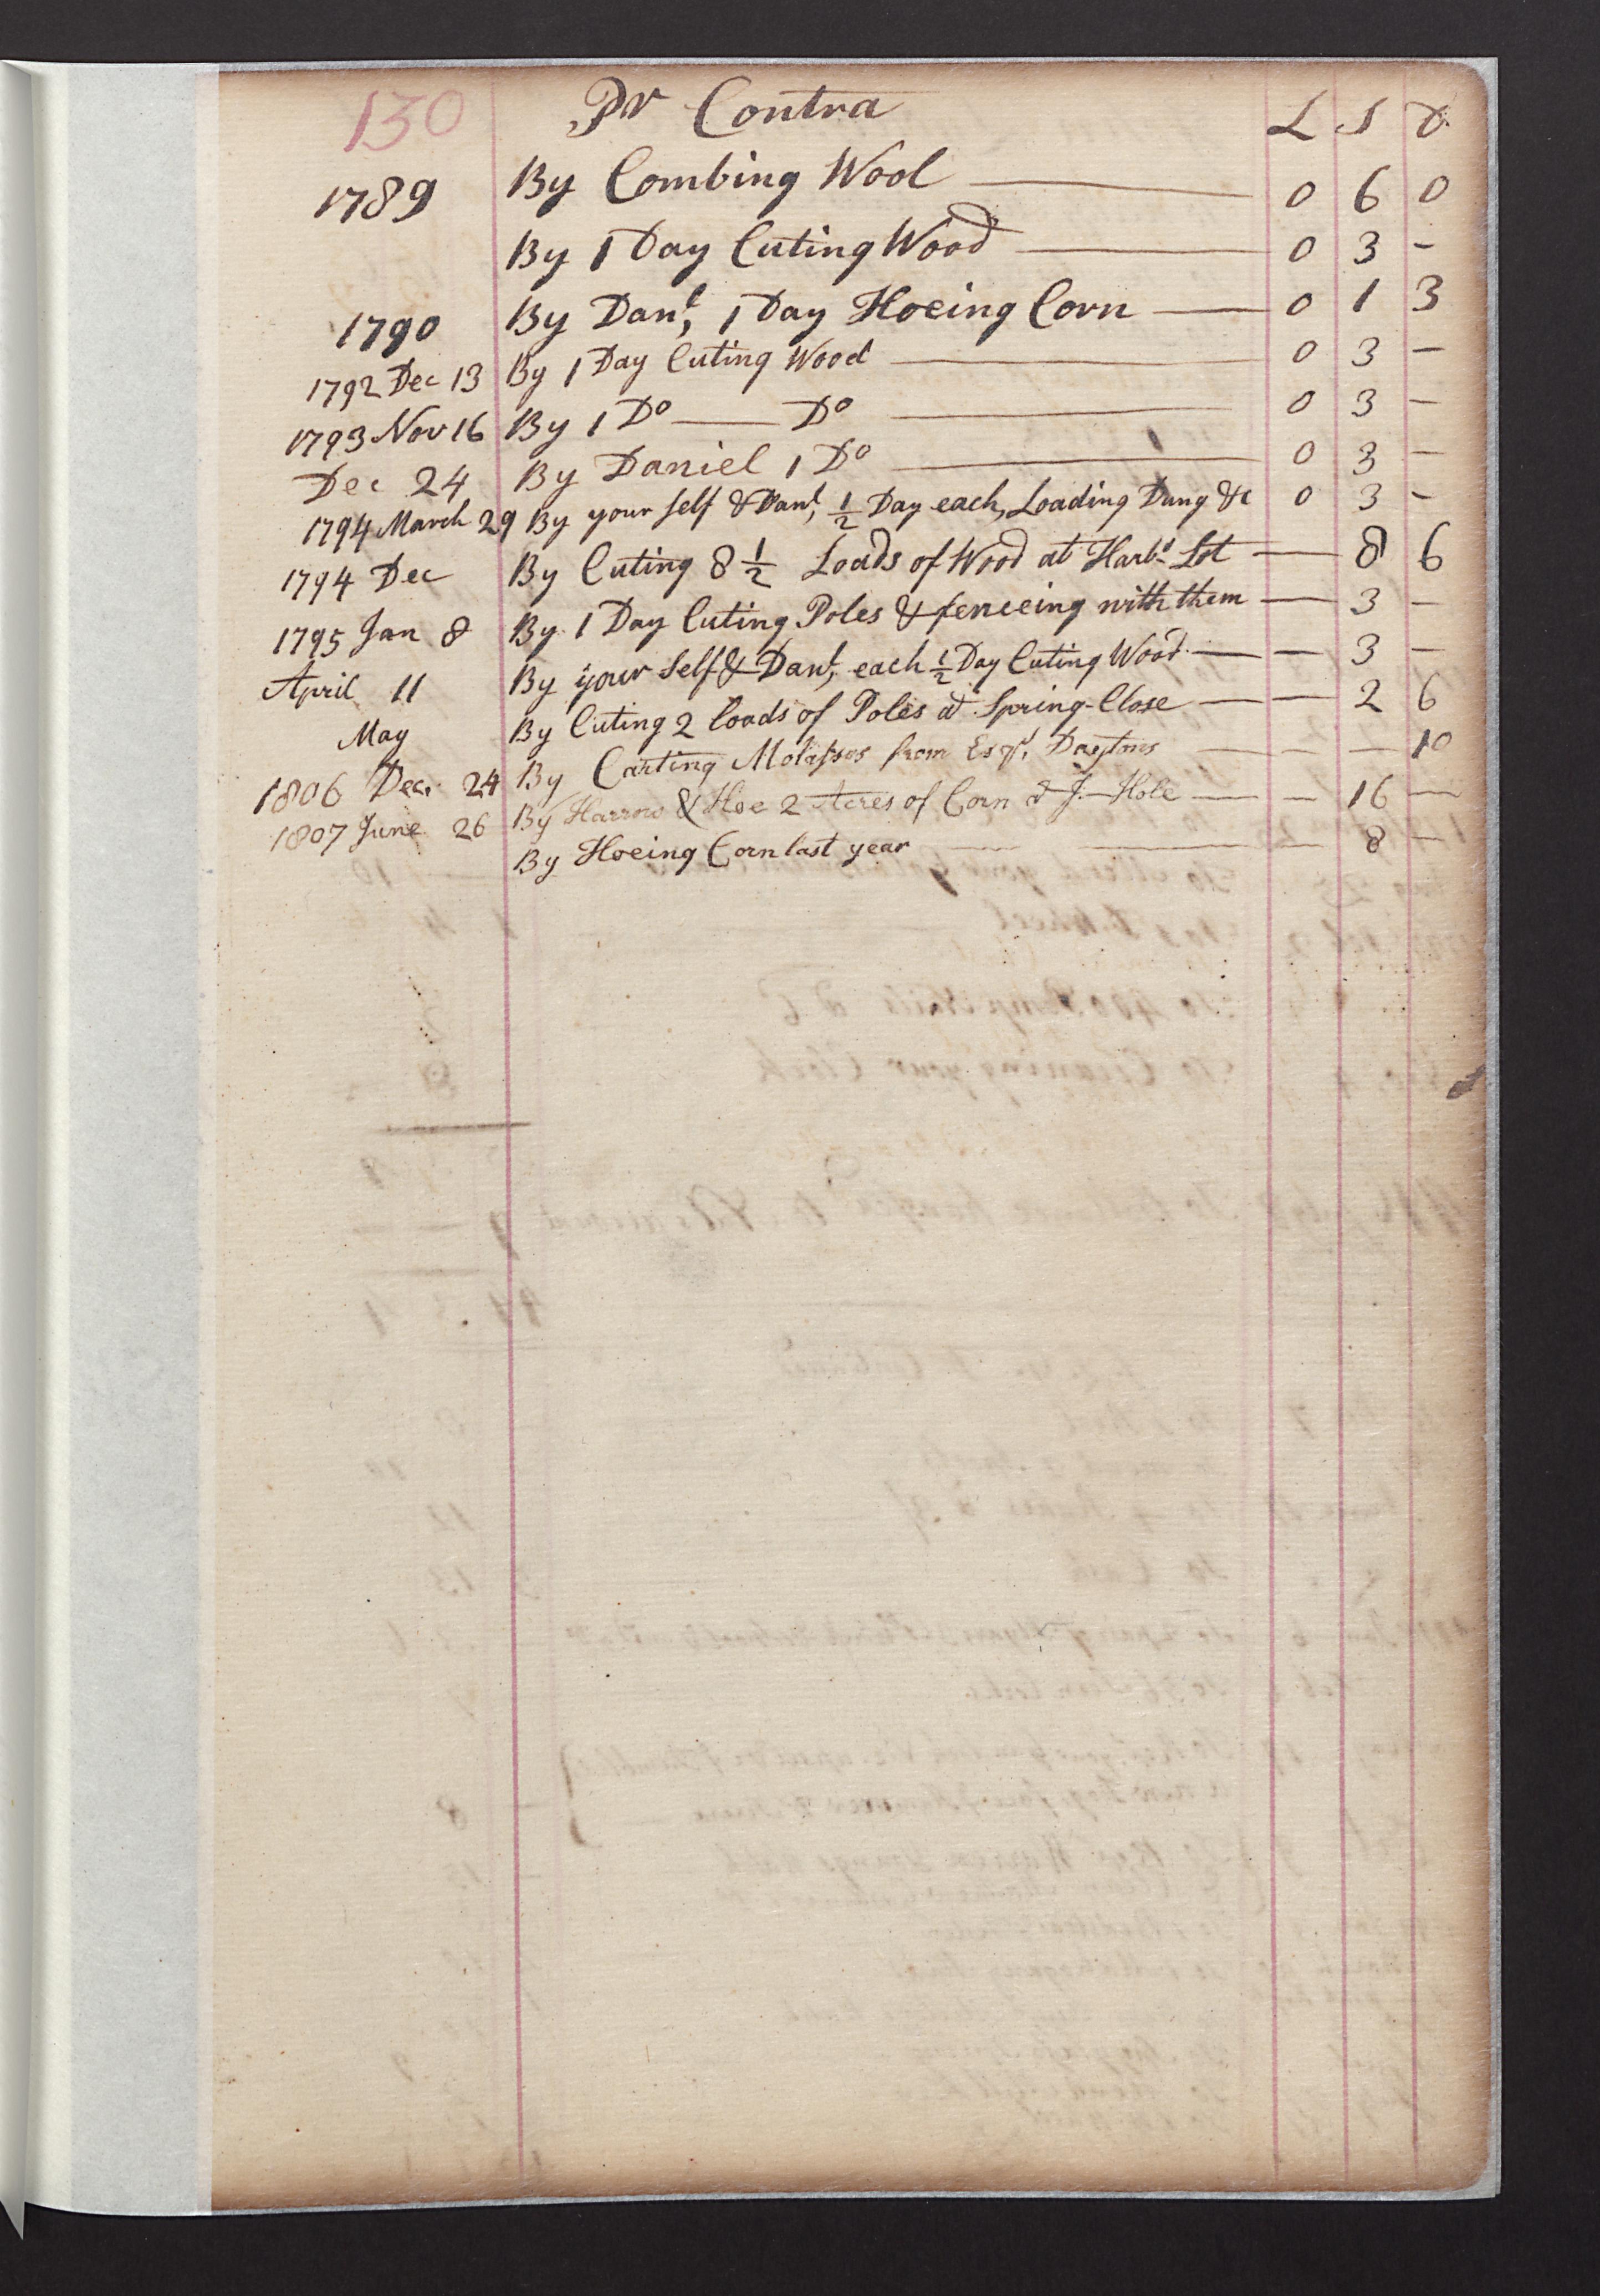 130 Pr Contra L S D
1789 By Combing Wool 0 6 0
By 1 Day Cuting Wood 0 3 -
1790 By Danl, 1 Day Hoeing Corn 0 1 3
1792 Dec 13 By 1 Day Cuting Wood 0 3 -
1793 Nov 16 By 1 Do Do 0 3 -
Dec 24 By Daniel 1 Do 0 3 -
1794 March 29 By your self & Danl, 1/2 Day each, Loading Dung &c 0 3 -
1794 Dec By Cuting 8 1/2 Loads of Wood at Harbr Lot 8 6
1795 Jan 8 By 1 Day Cuting Poles & fenceing with them 3 -
April 11 By your Self & Danl, each 1/2 Day Cuting Wood 3 -
May By Cuting 2 loads of Poles at Spring-Close 2 6
1806 Dec. 24 By Carting Molasses from Esqr, - 10
1807 June 26 By Harrow & Hoe 2 Acres of Corn at J. Hole 16 -
By Hoeing Corn last year 8 -